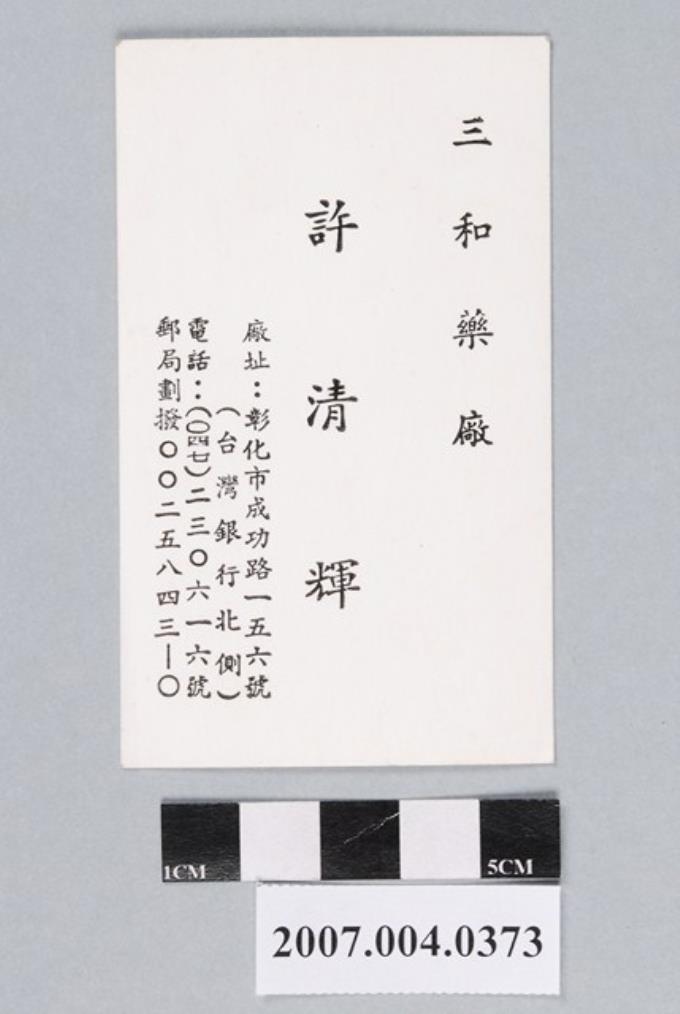 三和藥廠
許清輝
廠址：彰化市成功路一五六號
（台灣銀行北側）
電話：（〇四七）二三〇六一六號
郵局劃撥〇〇二五八四三—〇
1CM
5CM
2007.004.0373